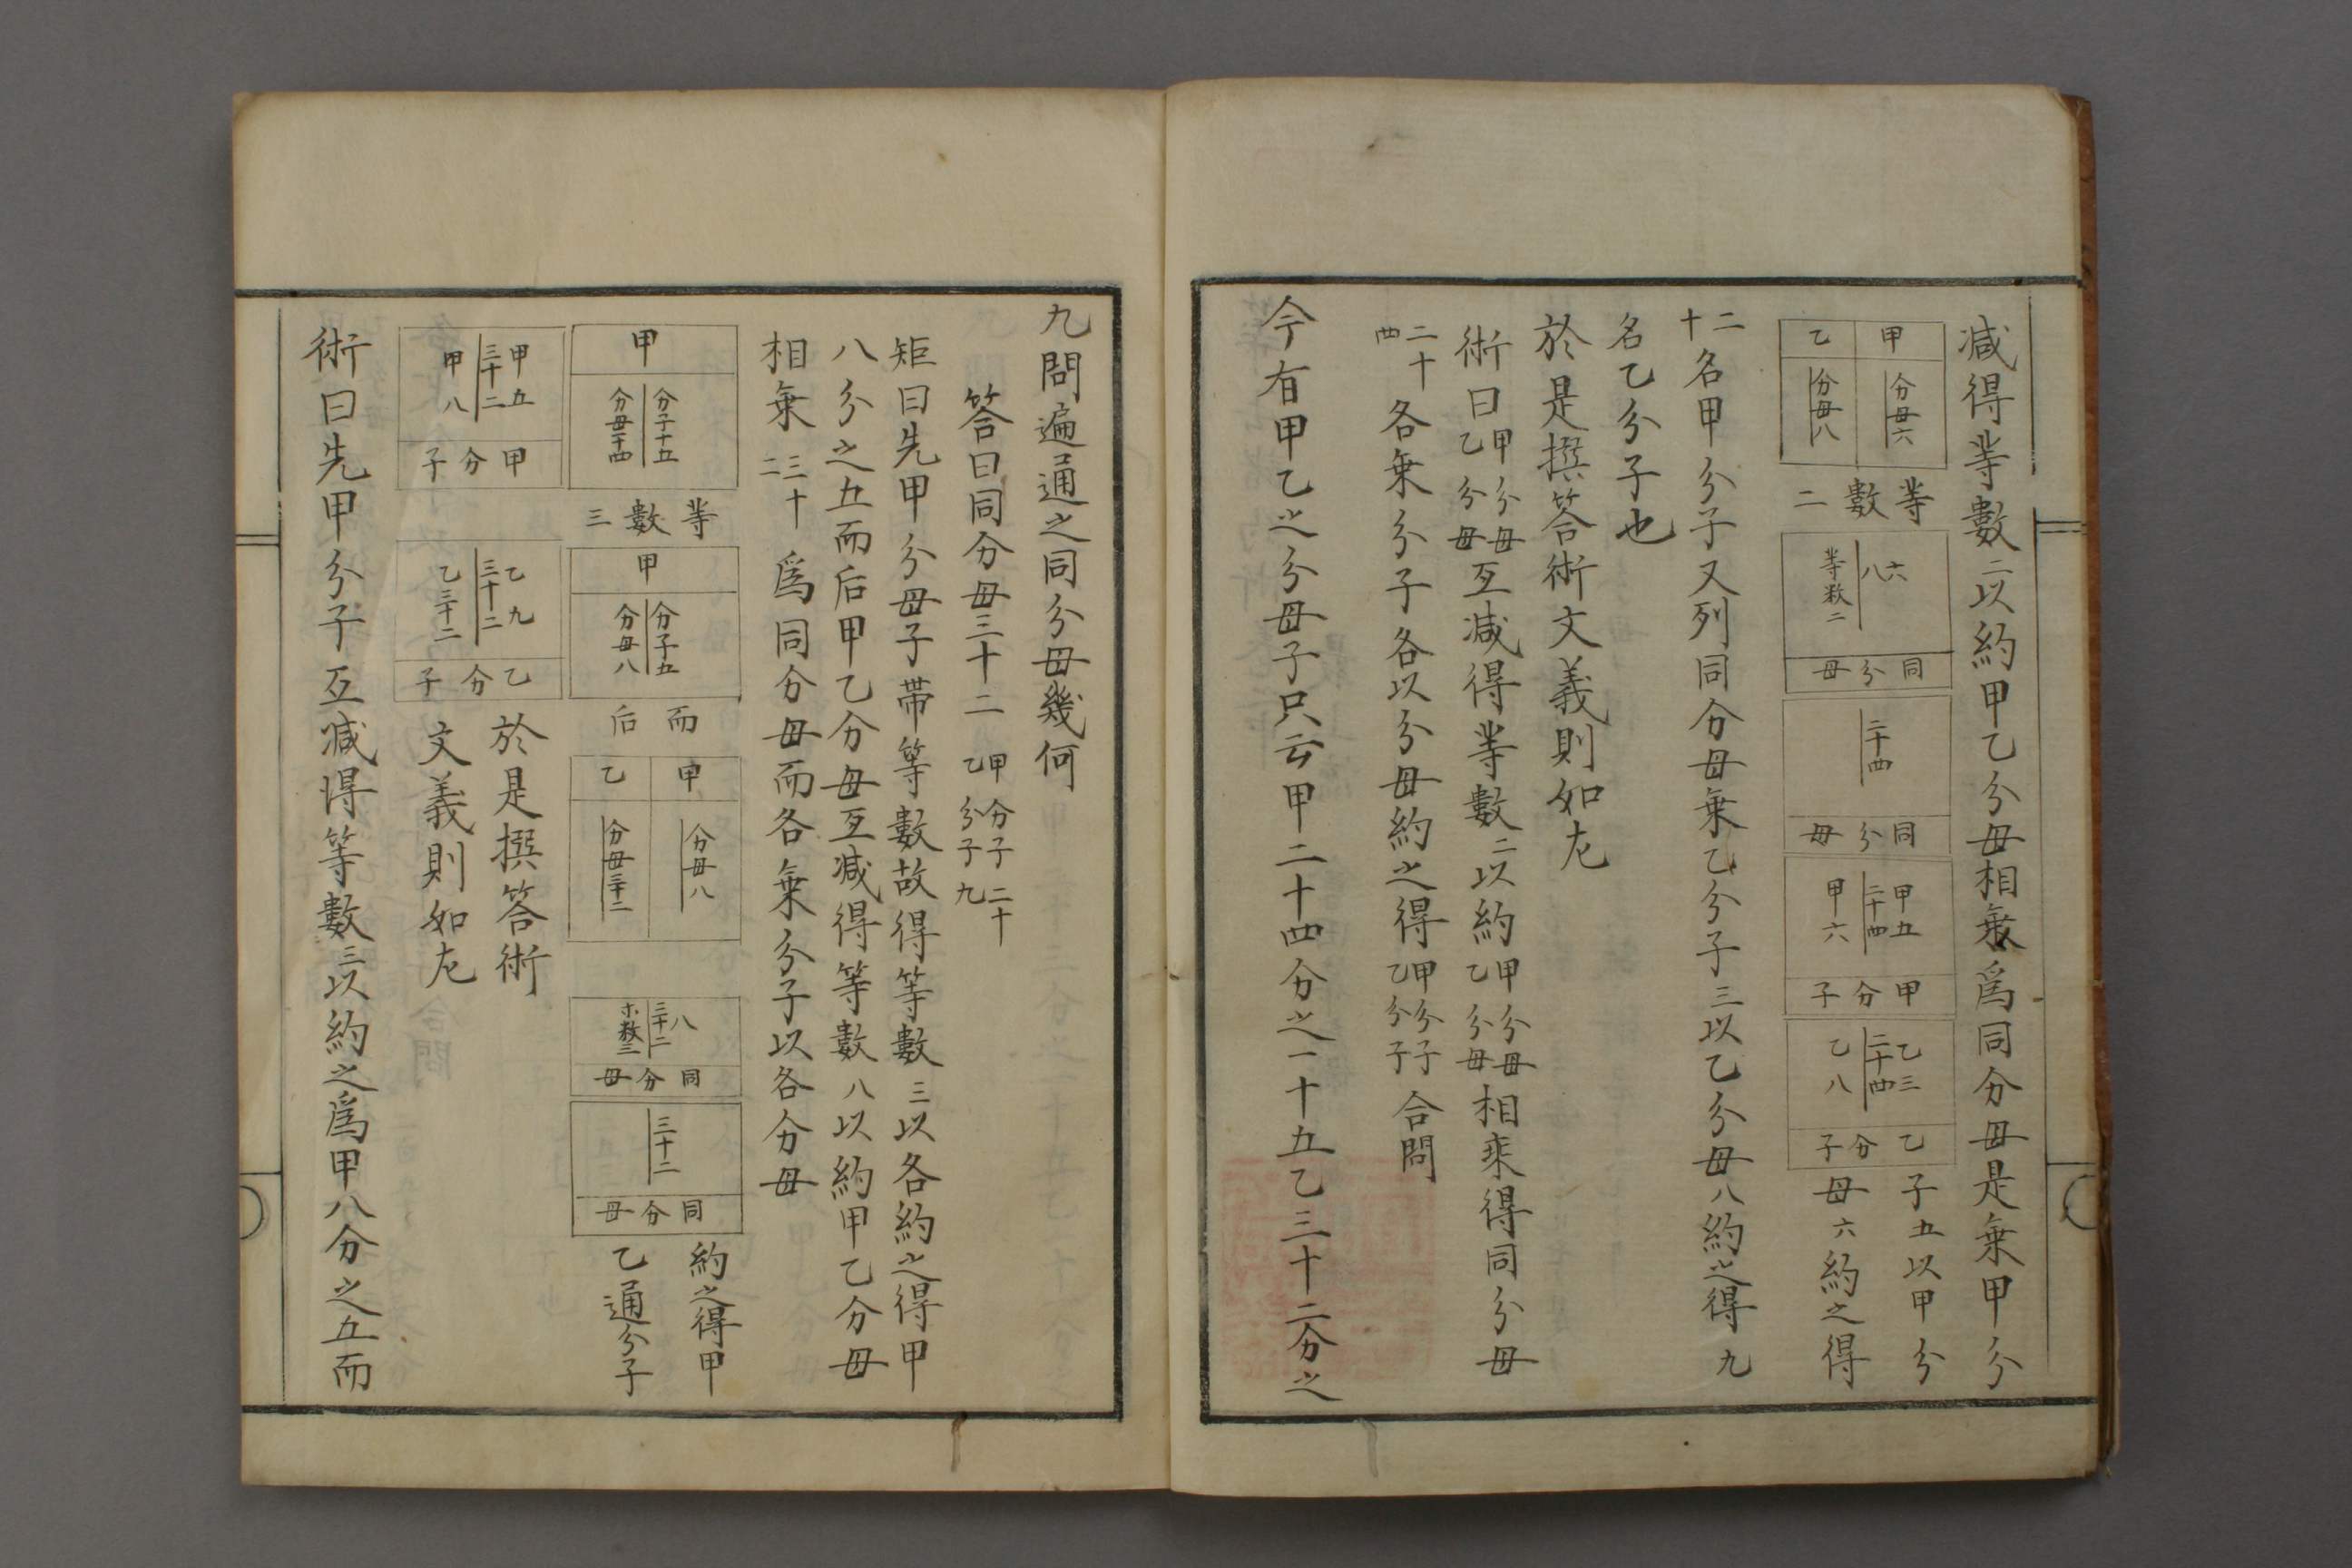 減得等數二以約甲乙分母相乗爲同分母是乗甲分
甲 乙
分母六 分母八
等數二
六八 等数二
同分母
二十四
同分母
甲五 二十四 甲六
甲分子
乙三 二十四 乙八
乙分子
子五以甲分
母六約之得
二十名甲分子又列同分母乗乙分子三以乙分母八約之得九
名乙分子也
於是撰答術文義則如左
術曰甲分母乙分母互減得等數二以約甲分母乙分母相乘得同分母
二十四各乗分子各以分母約之得甲分子乙分子合問
今有甲乙之分母子只云甲二十四分之一十五乙三十二分之
九問遍通之同分母幾何
答曰同分母三十二甲分子二十乙分子九
矩曰先甲分母子帯等數故得等數三以各約之得甲
八分之五而后甲乙分母互減得等數八以約甲乙分母
相乗三十二爲同分母而各乗分子以各分母
甲
分子十五 分母二十四
等數三
甲
分子五 分母八
而后
甲 乙
分母八 分母三十二
八 三十二
同分母
三十二
同分母
約之得甲
乙通分子
甲五 三十二 甲八
甲分子
乙九 三十二 乙三十二
乙分子
於是撰答術
文義則如左
術曰先甲分子互減得等數三以約之爲甲八分之五而